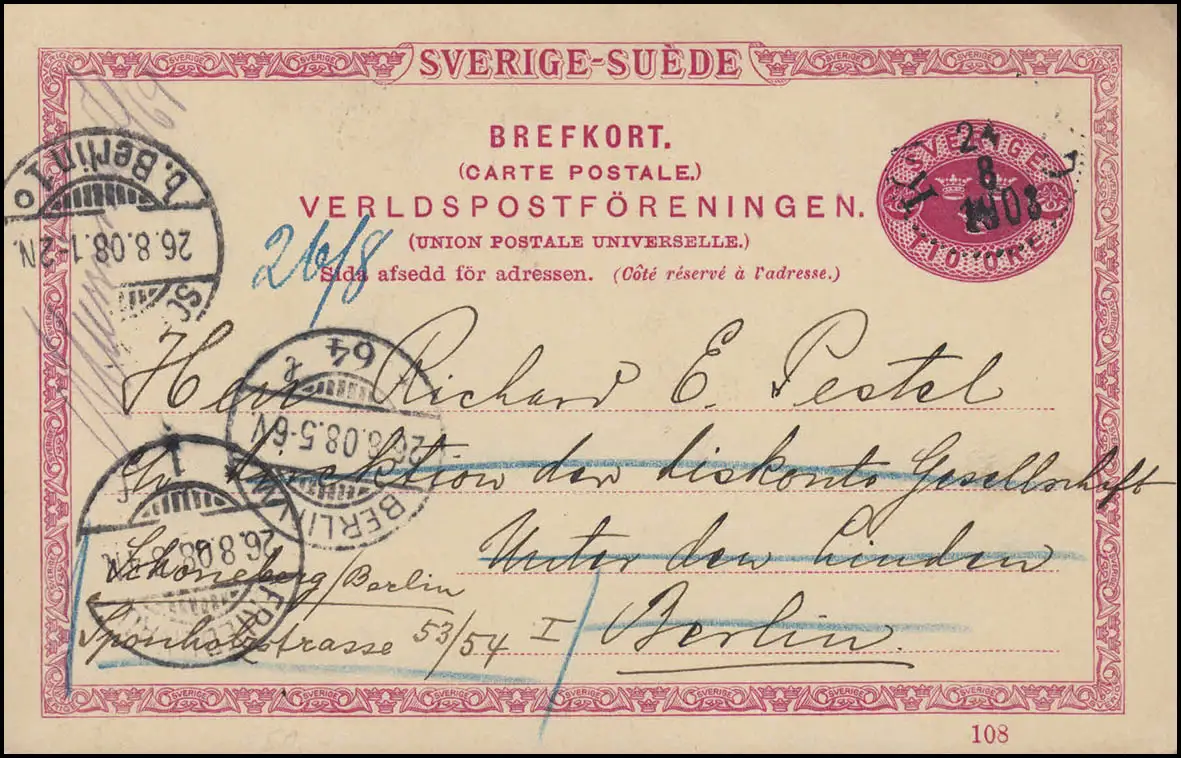 SVERIGE-SUÈDE
BREFKORT.
(CARTE POSTALE.)
VERLDSPOSTFÖRENINGEN.
(UNION POSTALE UNIVERSELLE.)
Sida afsedd för adressen. (Côté réservé à l'adresse.)
SVERIGE
TIO ÖRE
24
8
1908
26/8
b. Berlin 1
26.8.08.1-2N.
Herr Richard E. Pestel
64
26.8.08.5-6V
BERLIN
Direktion der Diskonto Gesellschaft
Unter den Linden
1
26.8.08.
Schöneberg/Berlin
Sponholzstrasse 53/54 I
Berlin.
108